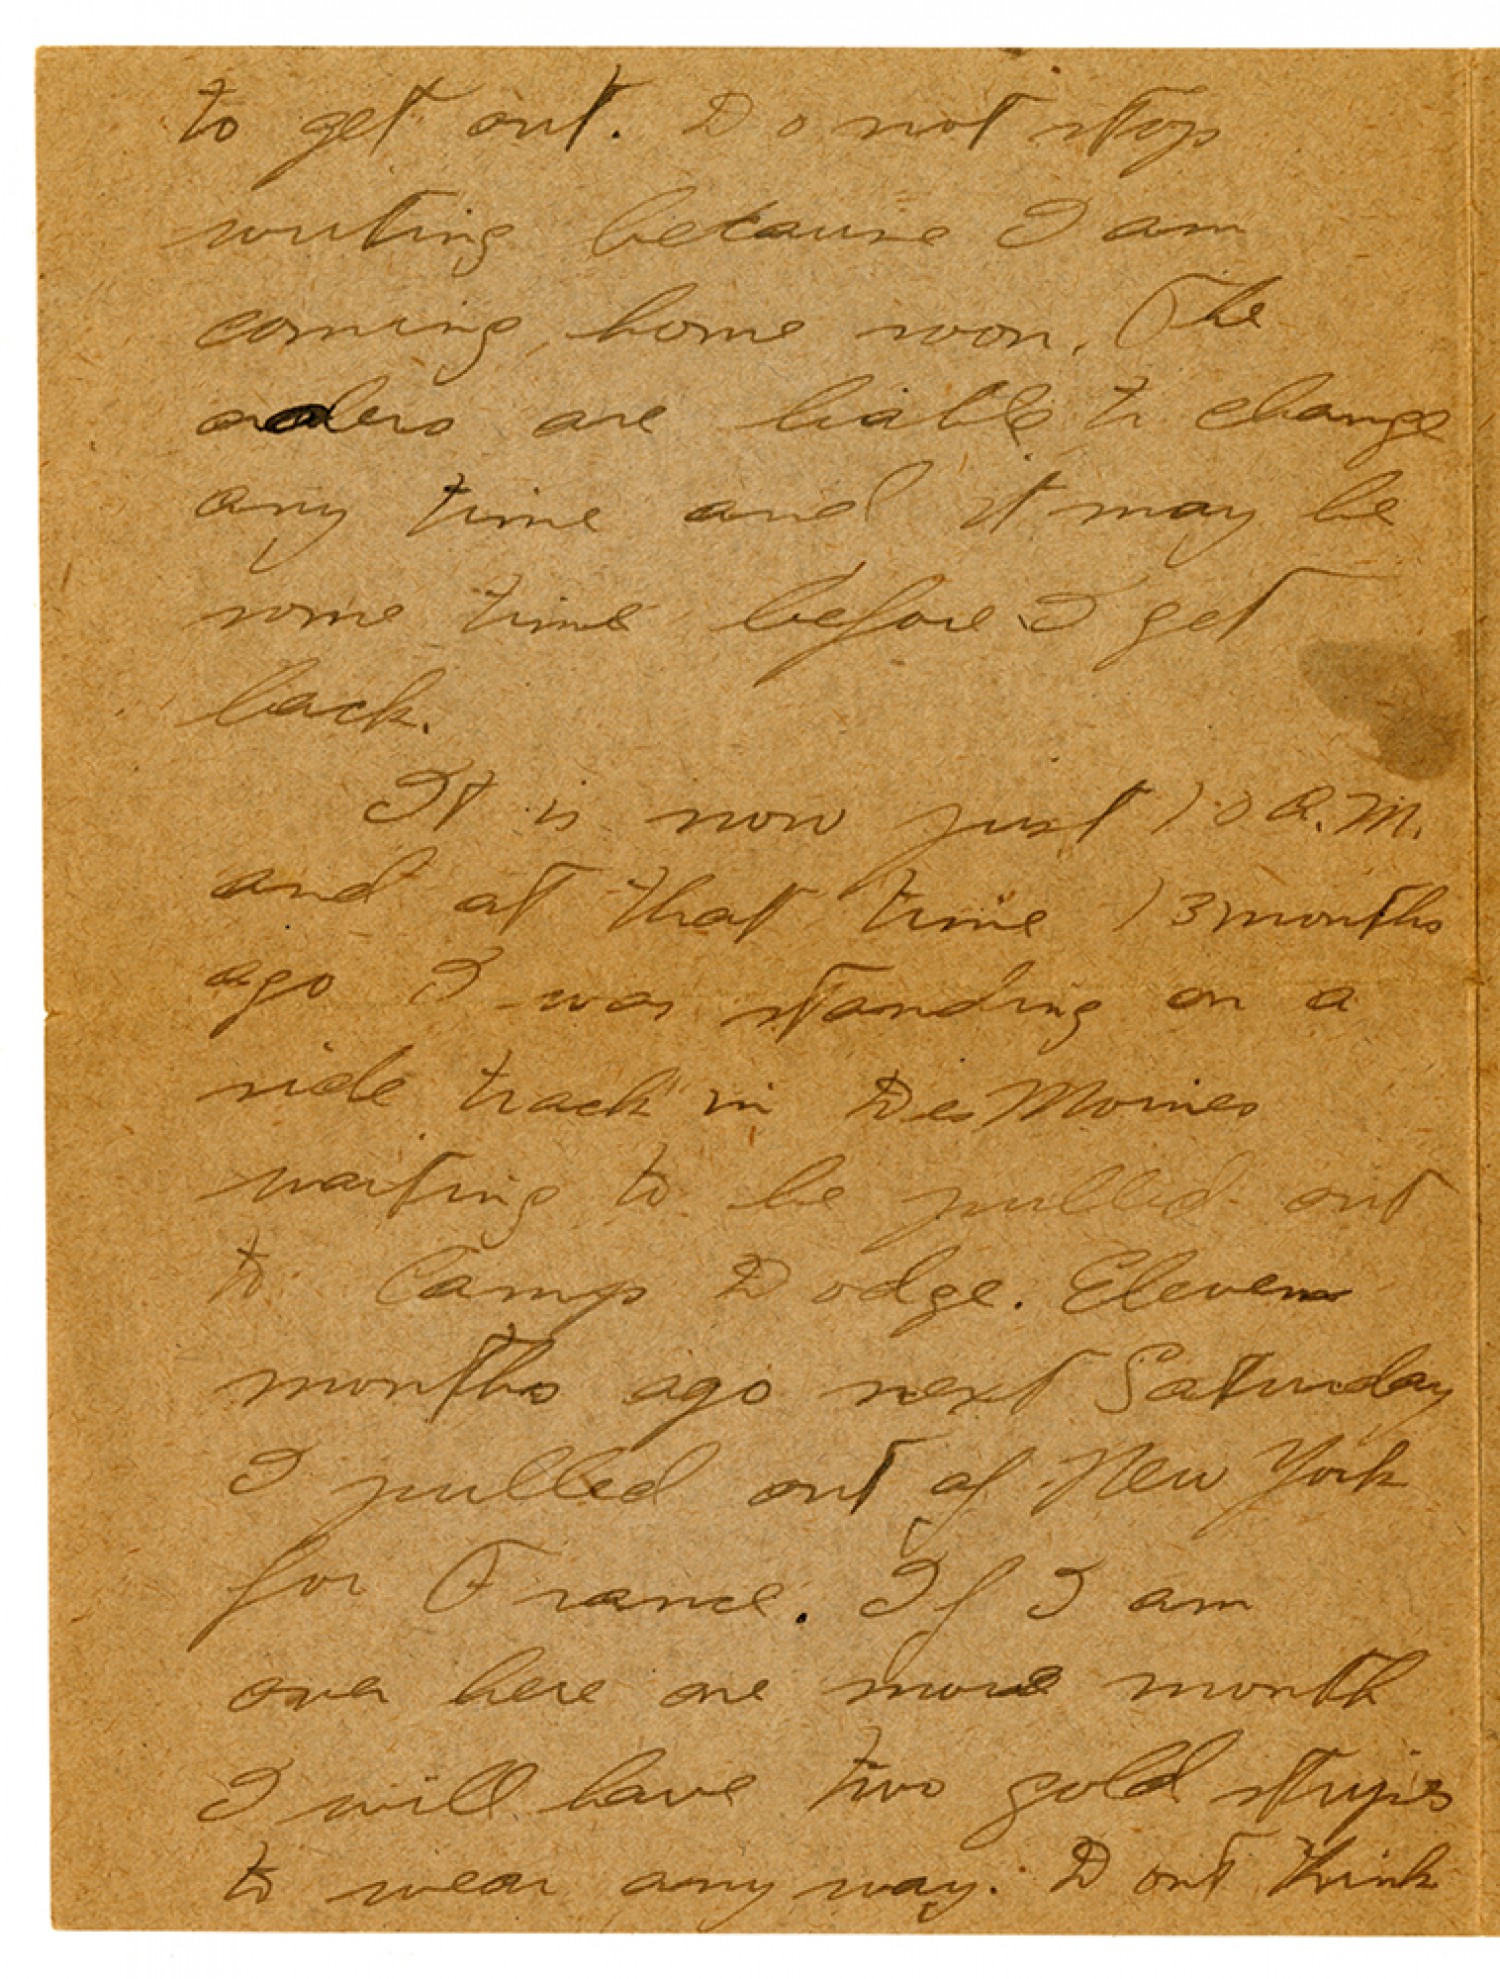 to get out. Do not stop
writing because I am
coming home soon. The
orders are liable to change
any time and it may be
some time before I get
back.
It is now just 10 A.M.
and at that time 13 months
ago I was standing on a
side track in Des Moines
waiting to be pulled out
to Camp Dodge. Eleven
months ago next Saturday
I pulled out of New York
for France. If I am
over here one more month
I will have two gold stripes
to wear any way. Dont think